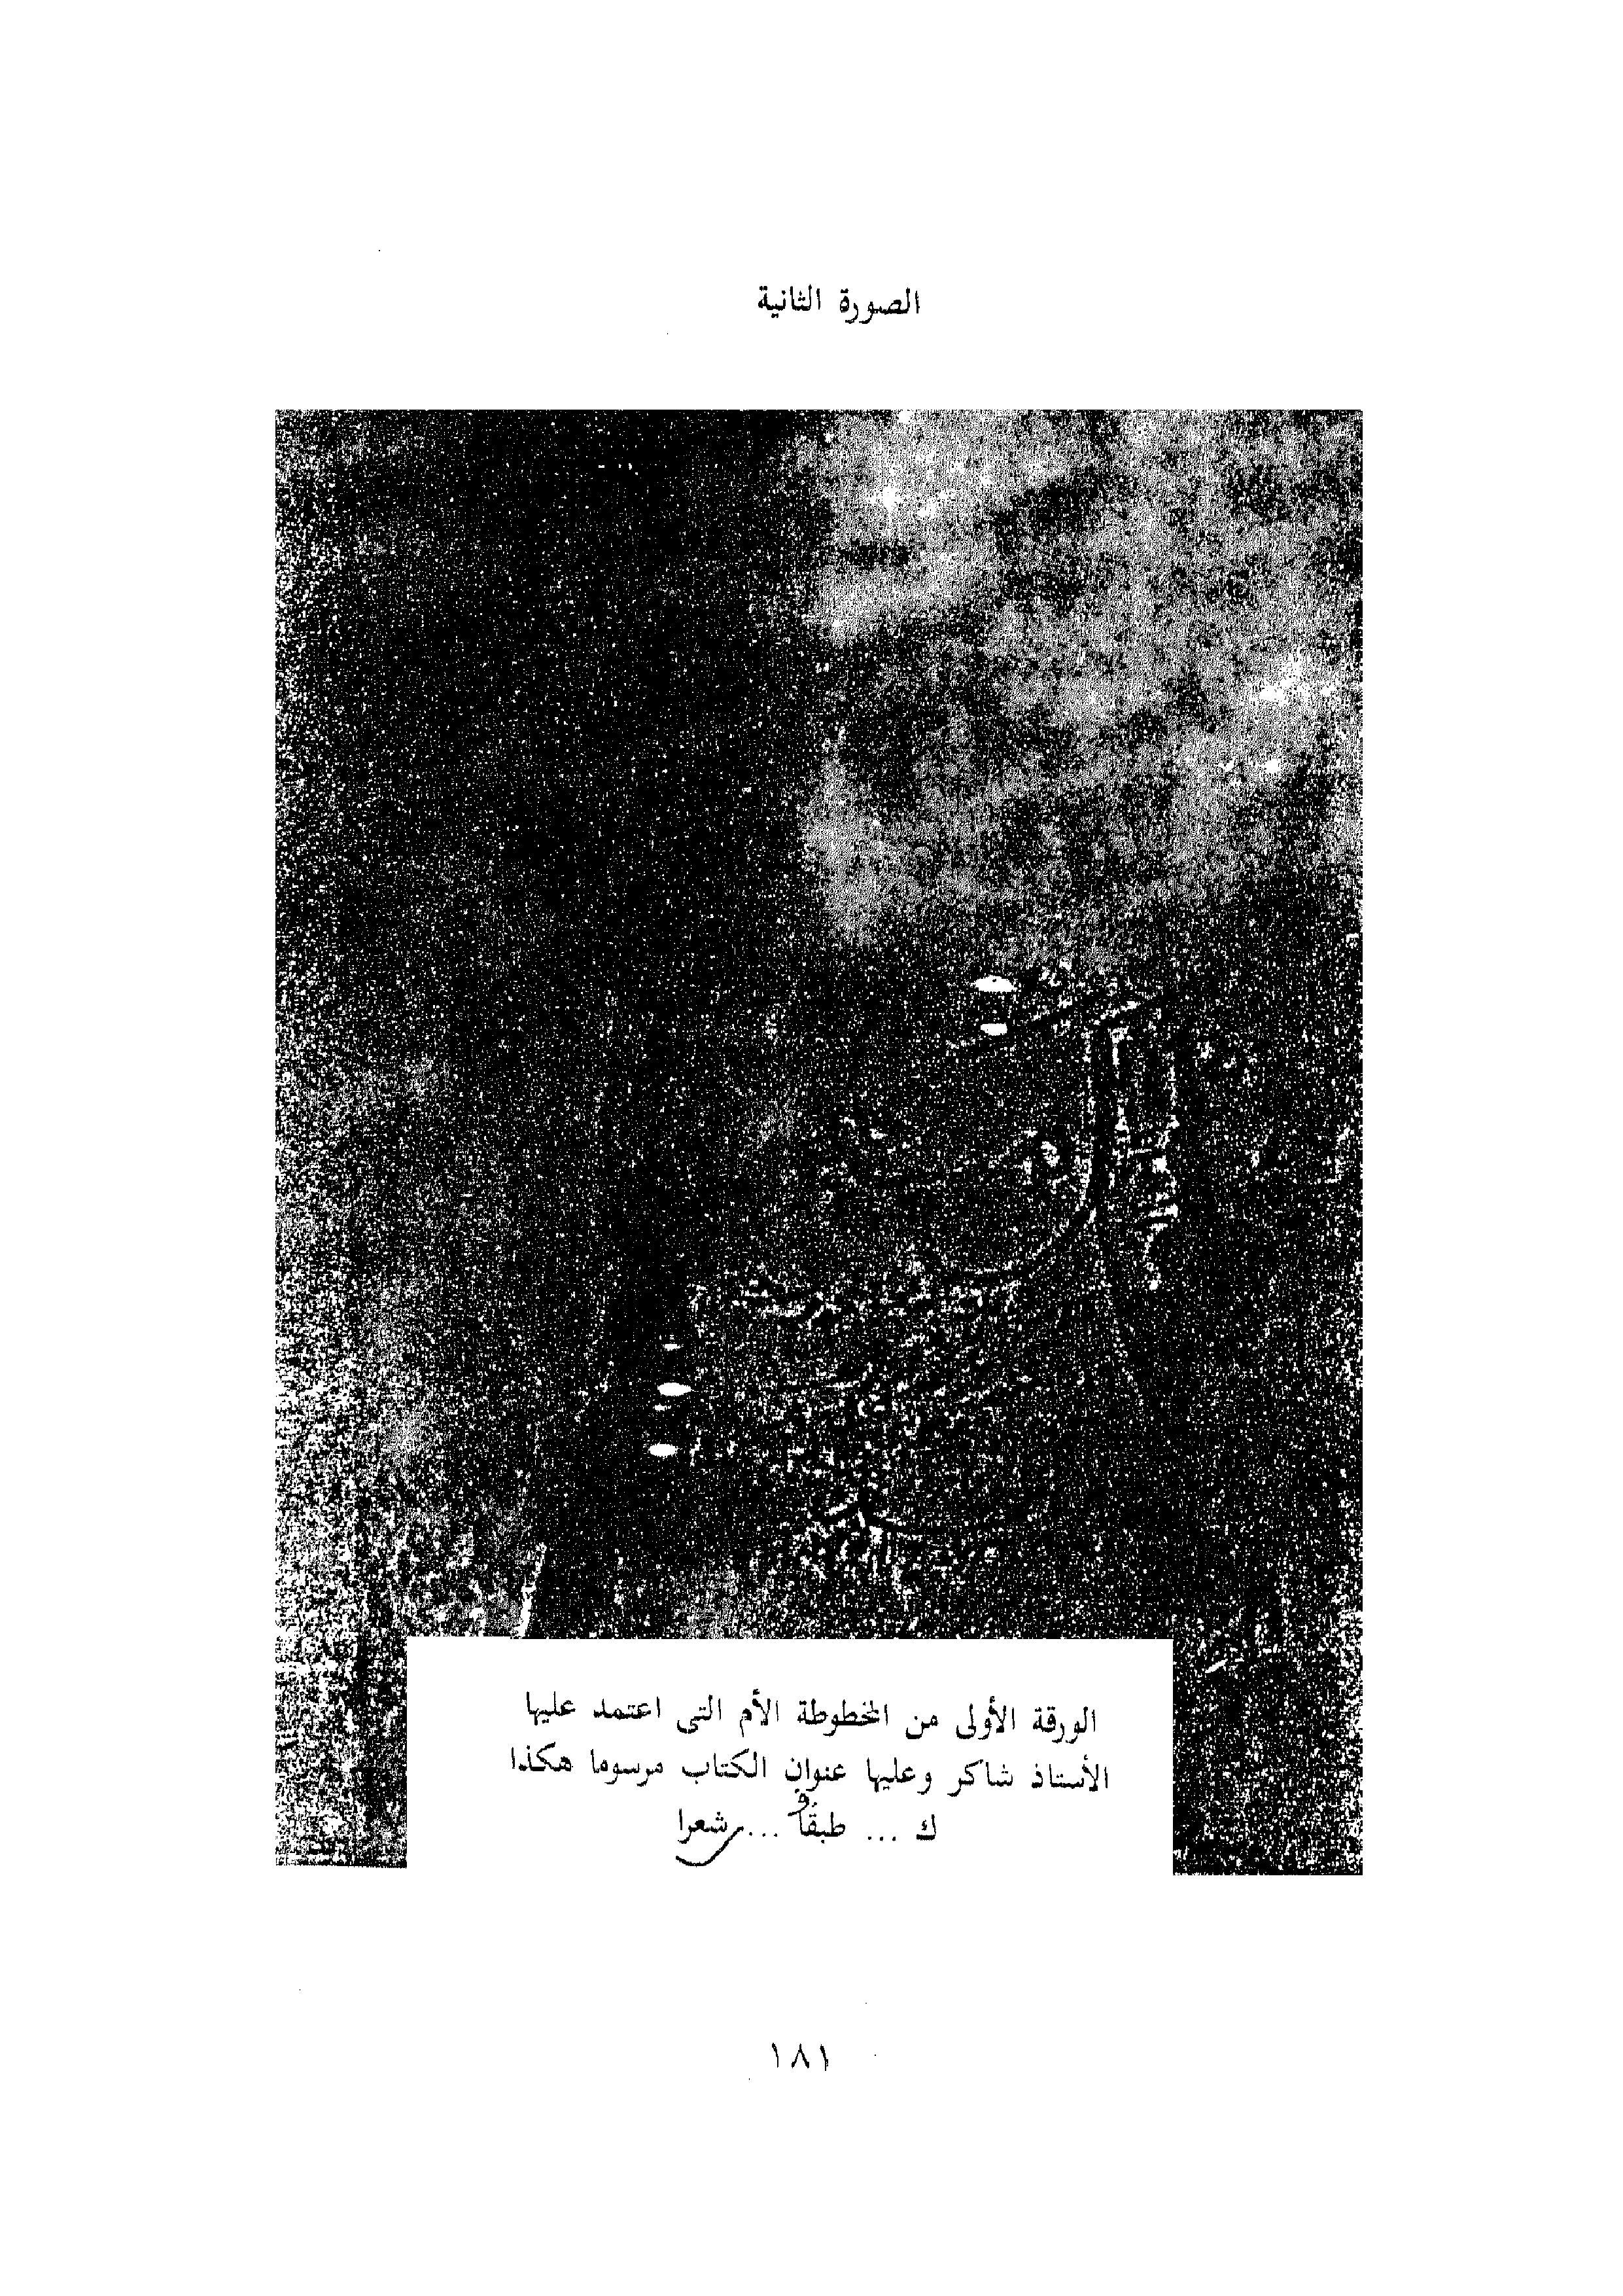 الصورة الثانية
الورقة الأولى من المخطوطة الأم التى اعتمد عليها
الأستاذ شاكر وعليها عنوان الكتاب مرسوما هكذا
ك ... طبقا ... شعرا
١٨١